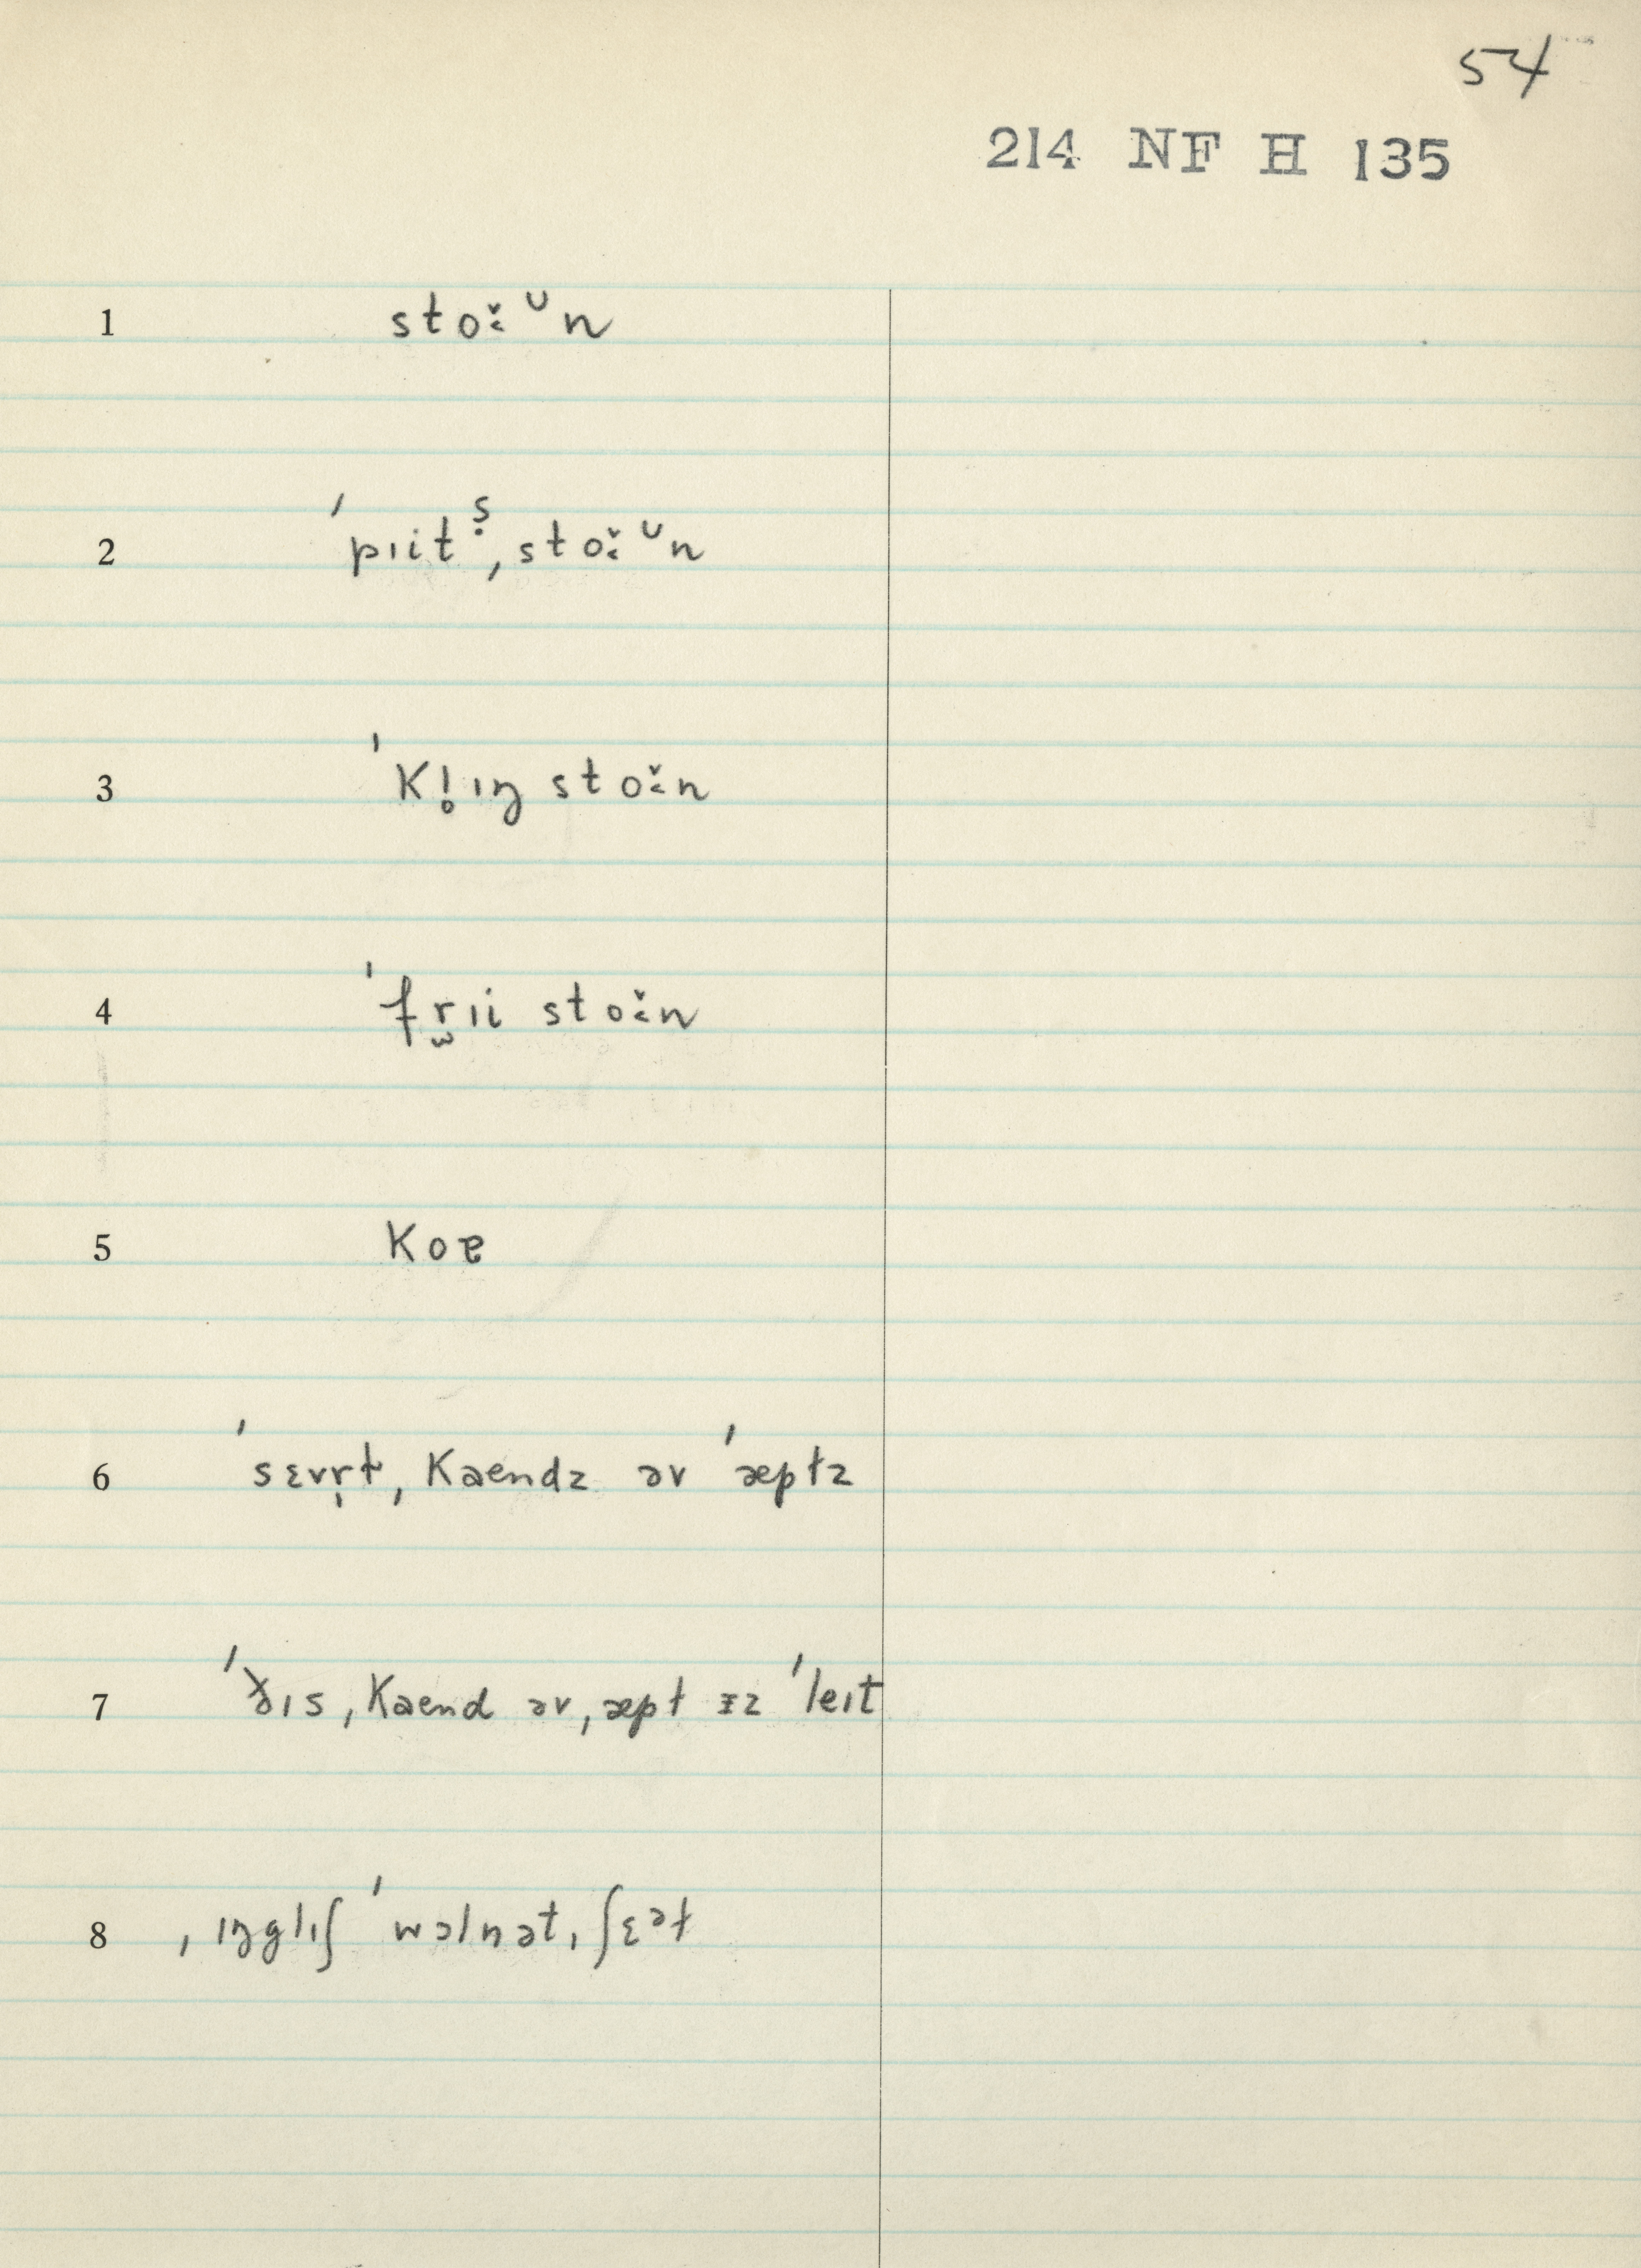 54
214 NF H 135
1 sto˞̌ ᶷn
2 ˈpɪitˢ̣ ˌsto˞̌ ᶷn
3 ˈkl̥ɪŋ stoˑ̌n
4 ˈfr̫ɪi stoˑ̌n
5 koɐ
6 ˈsɛvr̩ɫ ˌkaendz əv ˈæpɫz
7 ˈðɪs ˌkaend əv ˌæpɫ ɪz ˈleɪt
8 ˌɪŋglɪʃ ˈwɔlnət ˌʃɛᵊɫ